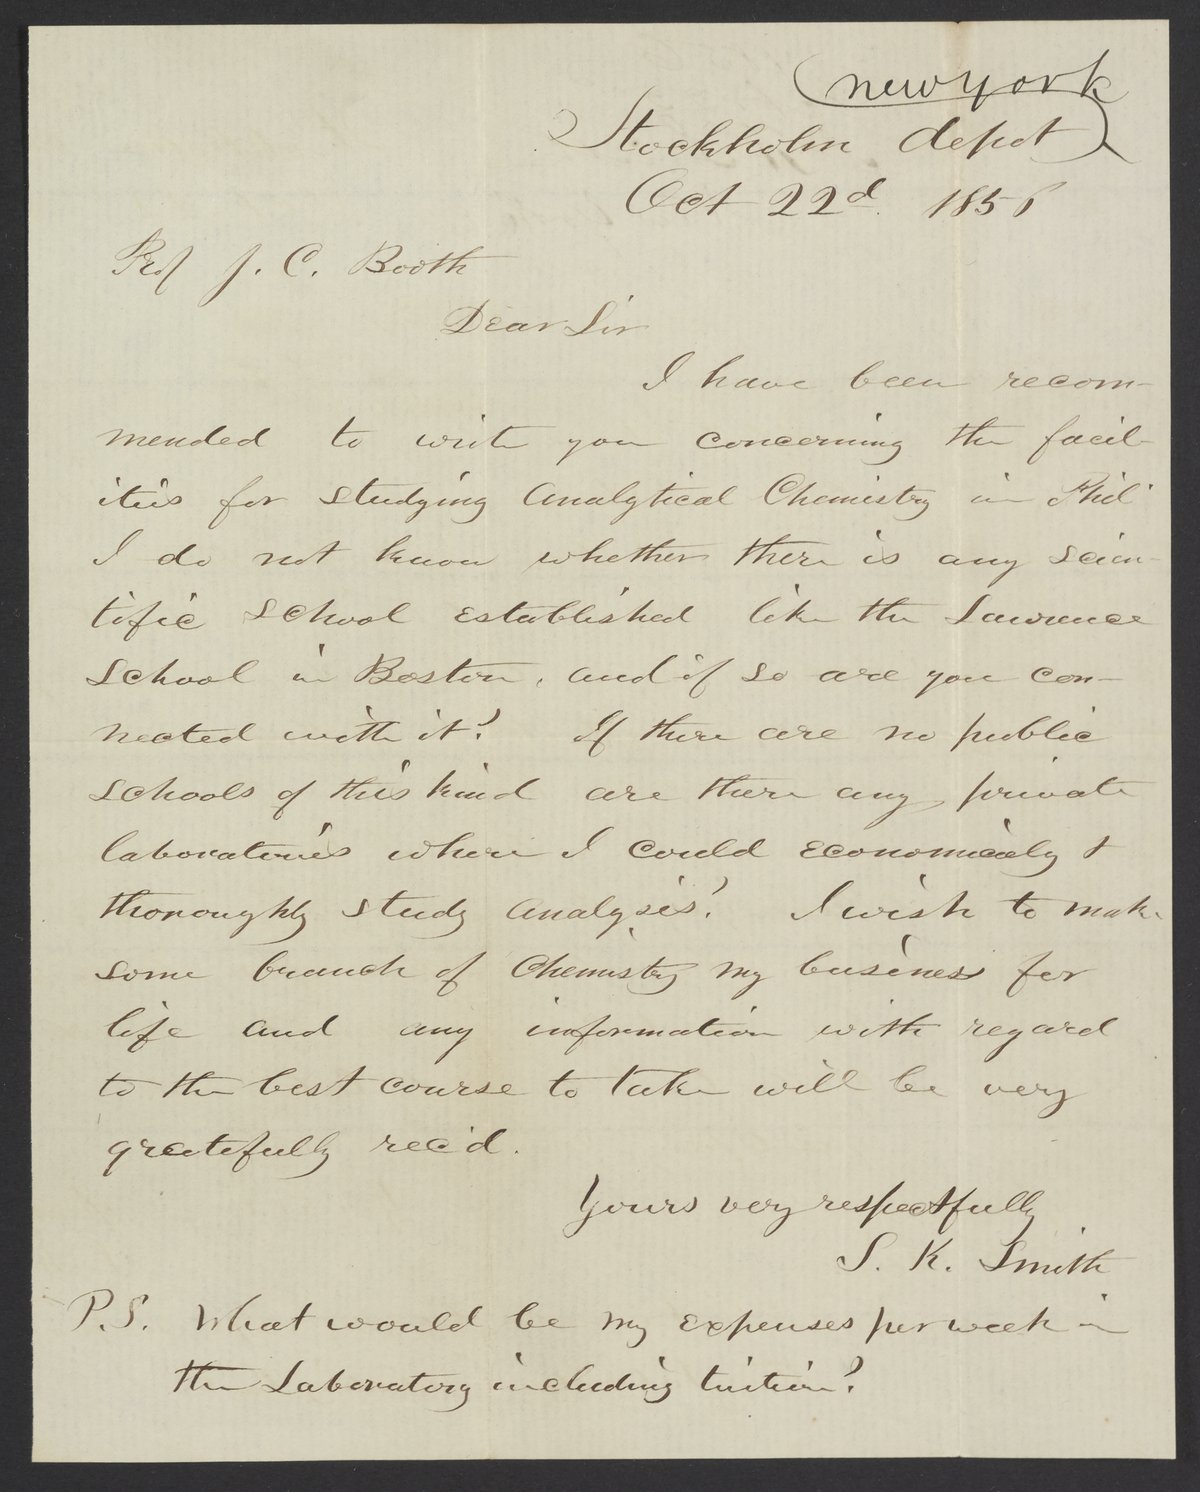 New York
Stockholm depot
Oct 22d. 1856
Prof J. C. Booth
Dear Sir
I have been recom-
mended to write you concerning the facil-
ities for studying Analytical Chemistry in Phil'
I do not know whether there is any scien-
tific school established like the Lawrence
School in Boston, and if so are you con-
nected with it? If there are no public
schools of this kind are there any private
laboratories where I could economicaly &
thoroughly study analysis? I wish to make
some branch of Chemistry my business for
life and any information with regard
to the best course to take will be very
gratefully rec'd.
Yours very respectfully
S. K. Smith
P.S. What would be my expenses per week in
the Laboratory including tuition?